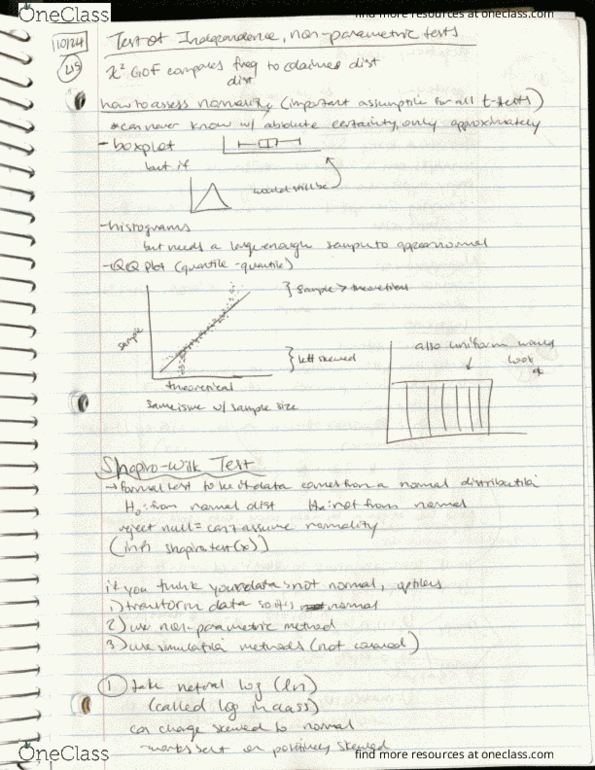 OneClass
find more resources at oneclass.com
10/24
L15
Test of Independence, non-parametric tests
χ² GOF compares freq to claimed dist
dist
how to assess normality (important assumption for all t-tests)
*can never know w/ absolute certainty, only approximately
- boxplot
but if
would still be
- histograms
but needs a large enough sample to appear normal
- QQ plot (quantile-quantile)
} sample > theoretical
sample
} left skewed
theoretical
same issue w/ sample size
also uniform
look
Shapiro-Wilk Test
→ formal test to see if data comes from a normal distribution
H₀: from normal dist Hₐ: not from normal
reject null = can't assume normality
(in R shapiro.test(x))
if you think your data's not normal, options
1) transform data so it's normal
2) use non-parametric method
3) use simulation methods (not covered)
1 take natural log (ln)
(called log in class)
can change skewed to normal
- works best on positively skewed
OneClass
find more resources at oneclass.com